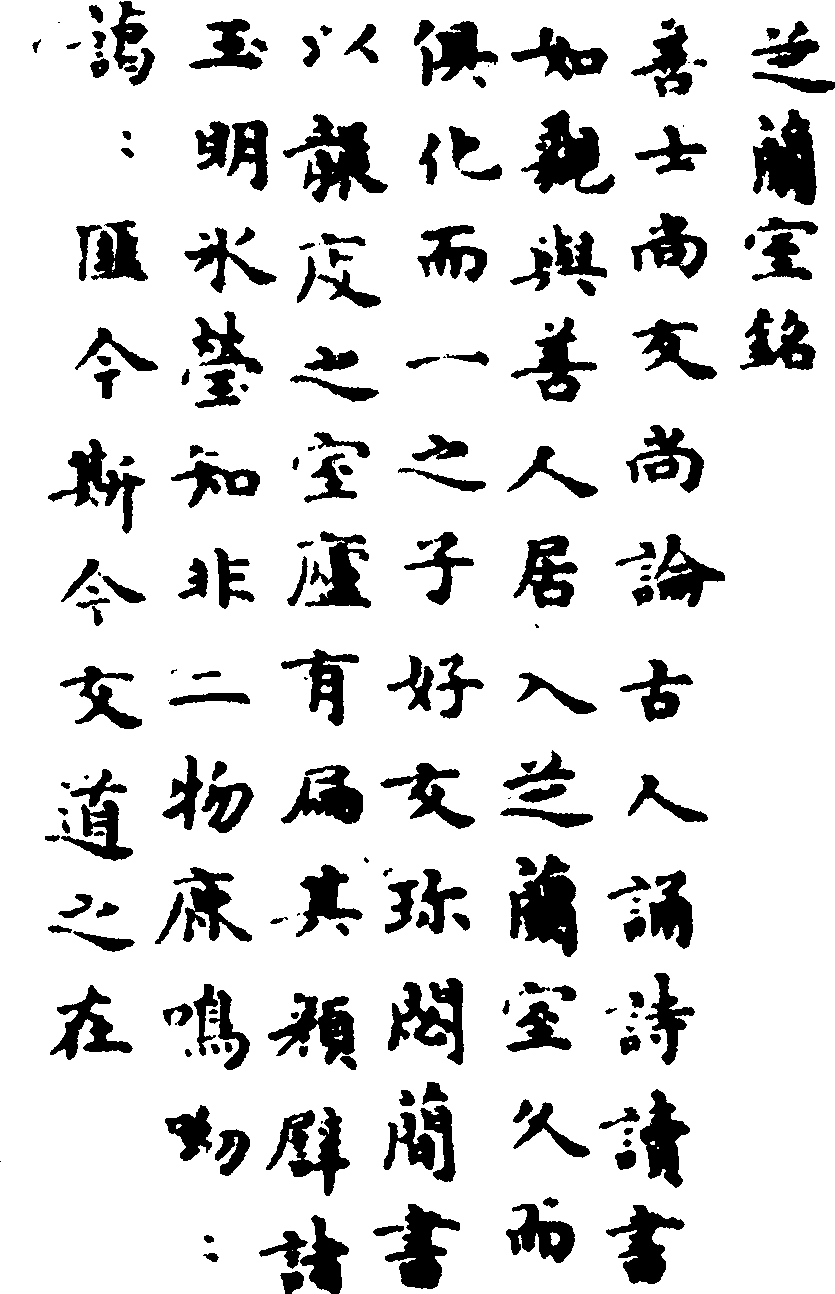 芝蘭室銘
善士尚友尚論古人誦詩讀書
如觀與善人居入芝蘭室久而
俱化而一之子好友珎閟簡書
以庋之室廬有扁其顏辟諸
玉明氷瑩知非二物鹿鳴呦:
譪:匪今斯今友道之在